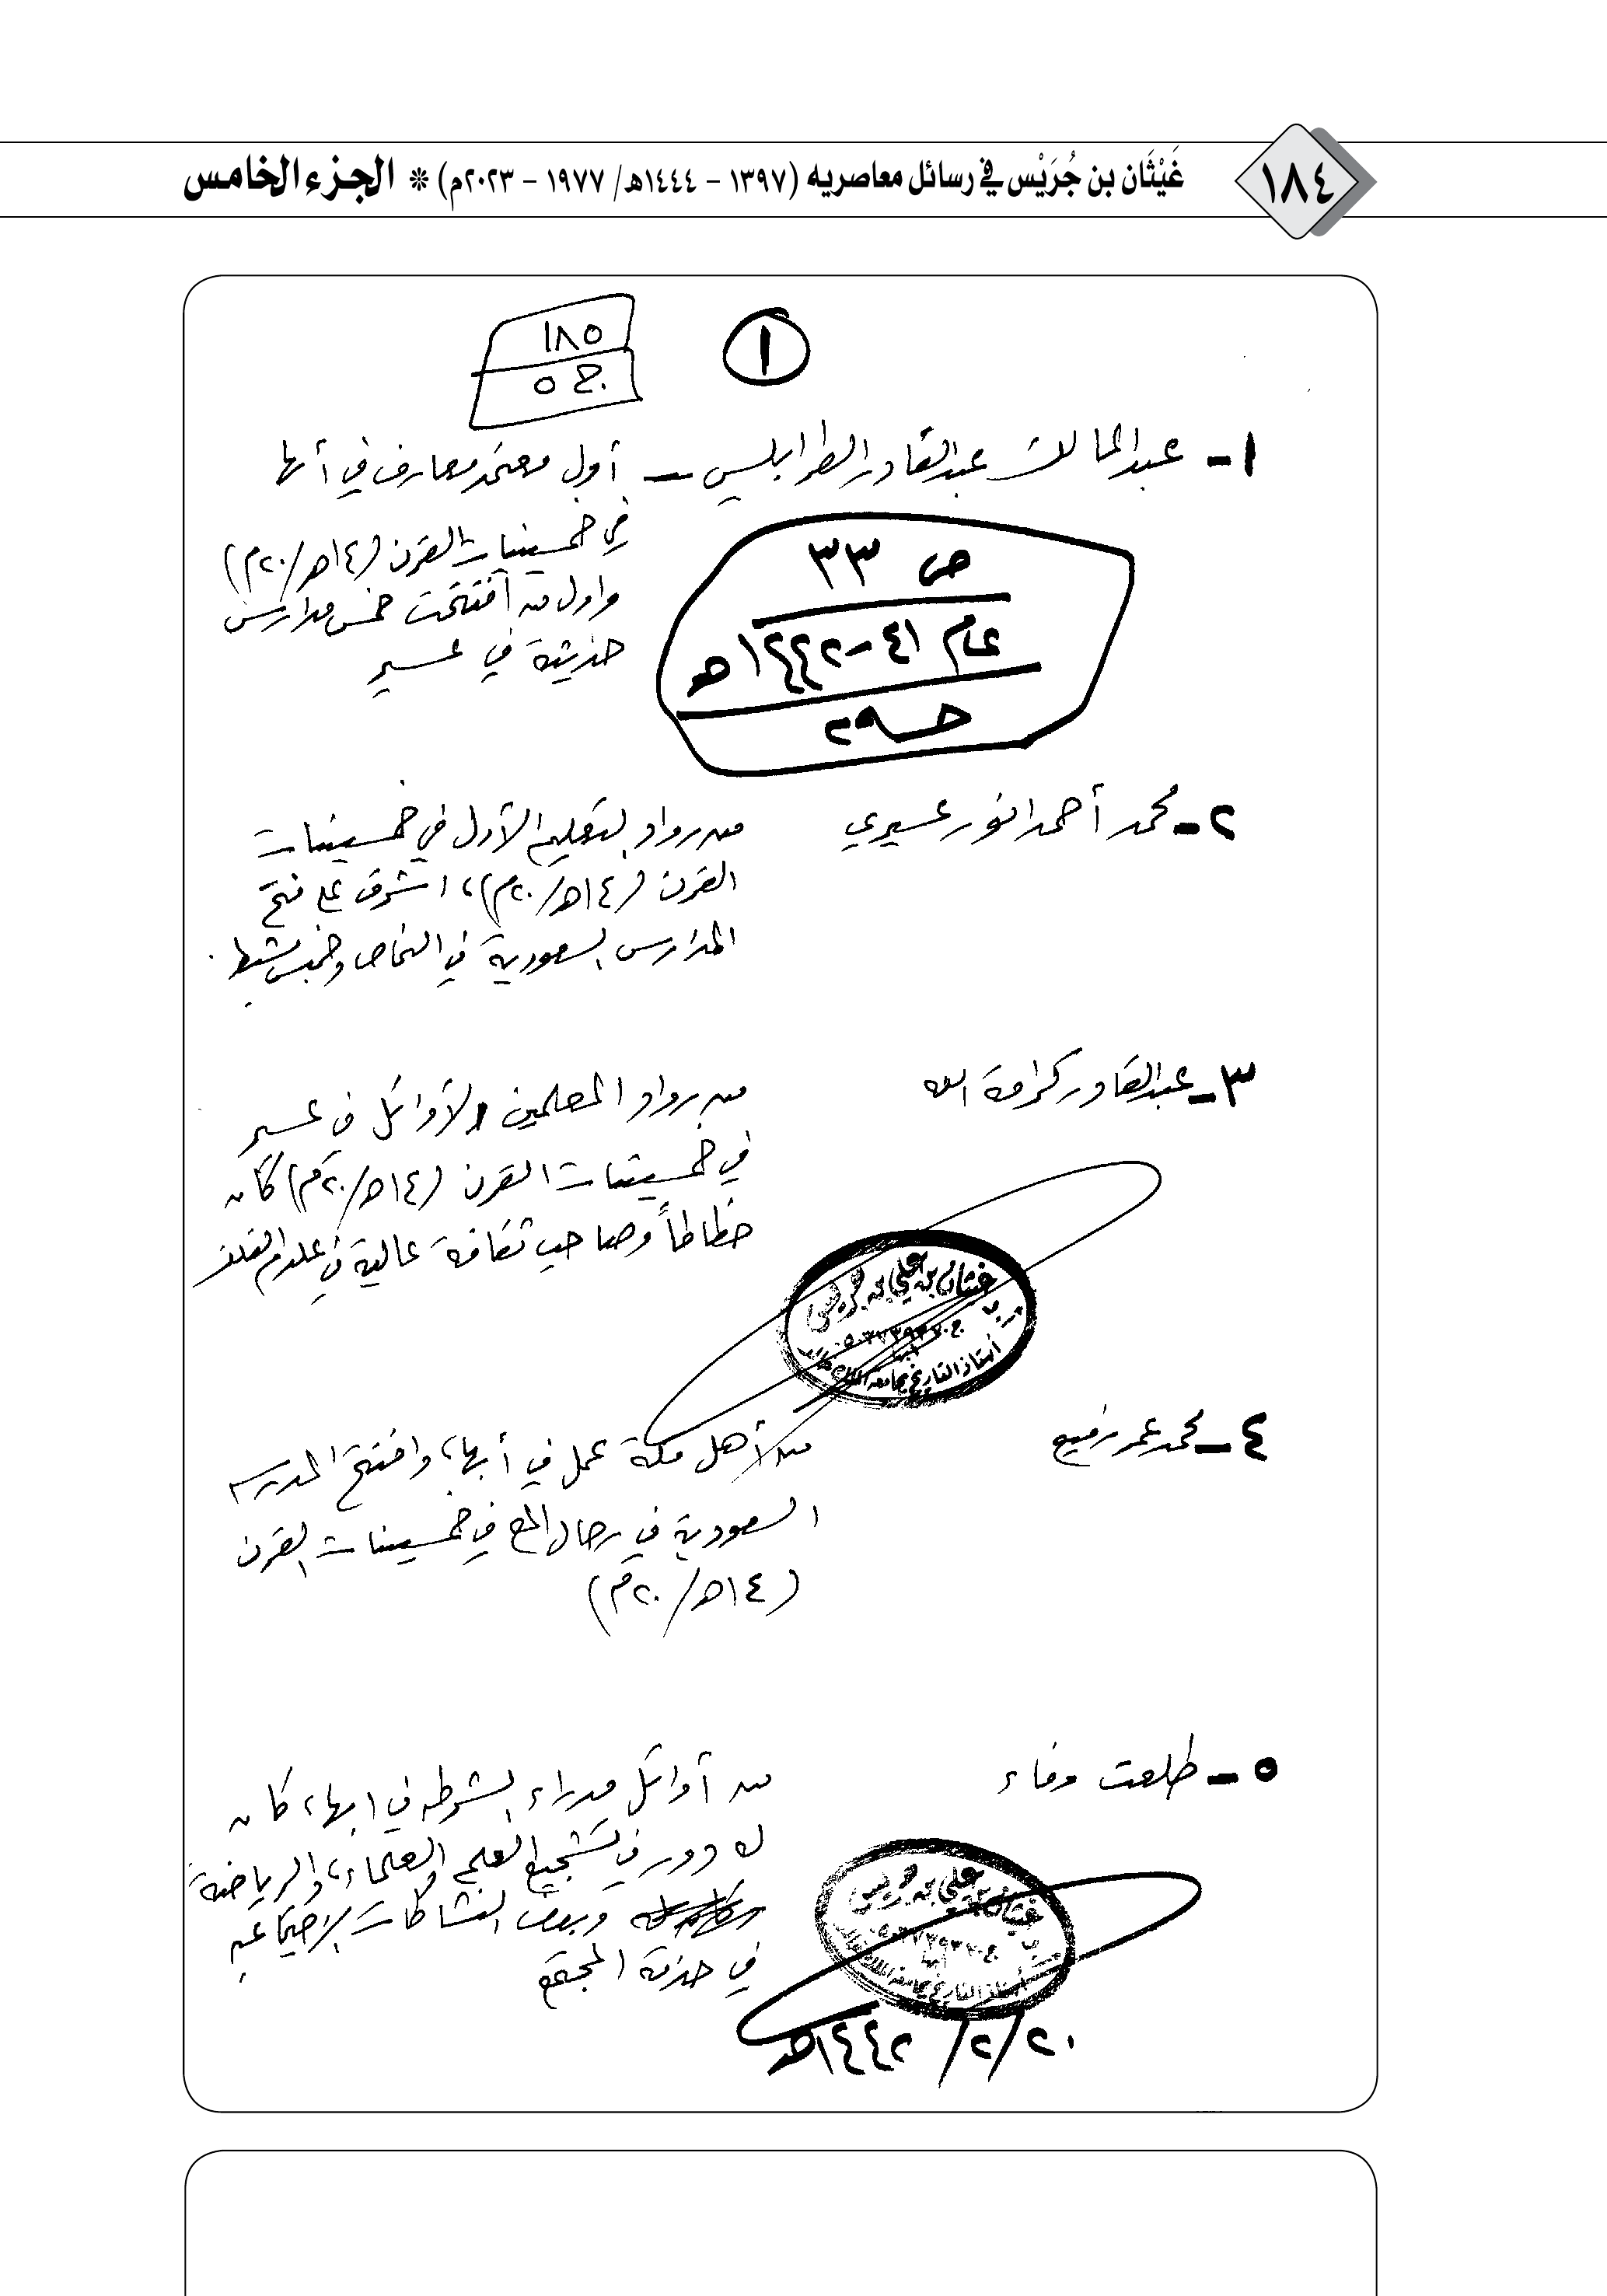 ١٨٤
غَيْثَان بن جُرَيْس في رسائل معاصريه (١٣٩٧ - ١٤٤٤هـ/ ١٩٧٧ - ٢٠٢٣م) ❊ الجزء الخامس
١
١٨٥
ج ٥
١- عبدالمالك عبدالقادر الطرابلسي - أول معتمد معارف في أبها
في خمسينيات القرن (١٤هـ/٢٠م)
واول من افتتحت خمس مدارس
حديثة في عسير
ص ٣٣
عام ٤١-١٤٤٢هـ
٢- محمد أحمد انور عسيري
من رواد التعليم الأول في خمسينيات
القرن (١٤هـ/٢٠م)، اشرف على فتح
المدارس السعودية في النماص وخميس مشيط.
٣- عبدالقادر كرامة الله
من رواد المعلمين الأوائل في عسير
في خمسينيات القرن (١٤هـ/٢٠م) كان
خطاطاً وصاحب ثقافة عالية في علوم الفلك
غيثان بن علي بن جريس
أبها
أستاذ التاريخ بجامعة الملك خالد
٤- محمد عمر رفيع
من أهل مكة عمل في أبها، وافتتح المدرسة
السعودية في رجال المع في خمسينات القرن
(١٤هـ/٢٠م)
٥- طلعت وفاء
من أوائل مدراء الشرطة في ابها، كان
له دور في تشجيع العلم والعلماء، والرياضة
وبعض النشاطات الاجتماعية
في خدمة المجتمع
غيثان بن علي بن جريس
أبها
أستاذ التاريخ بجامعة الملك خالد
٢٠/٢/١٤٤٢هـ